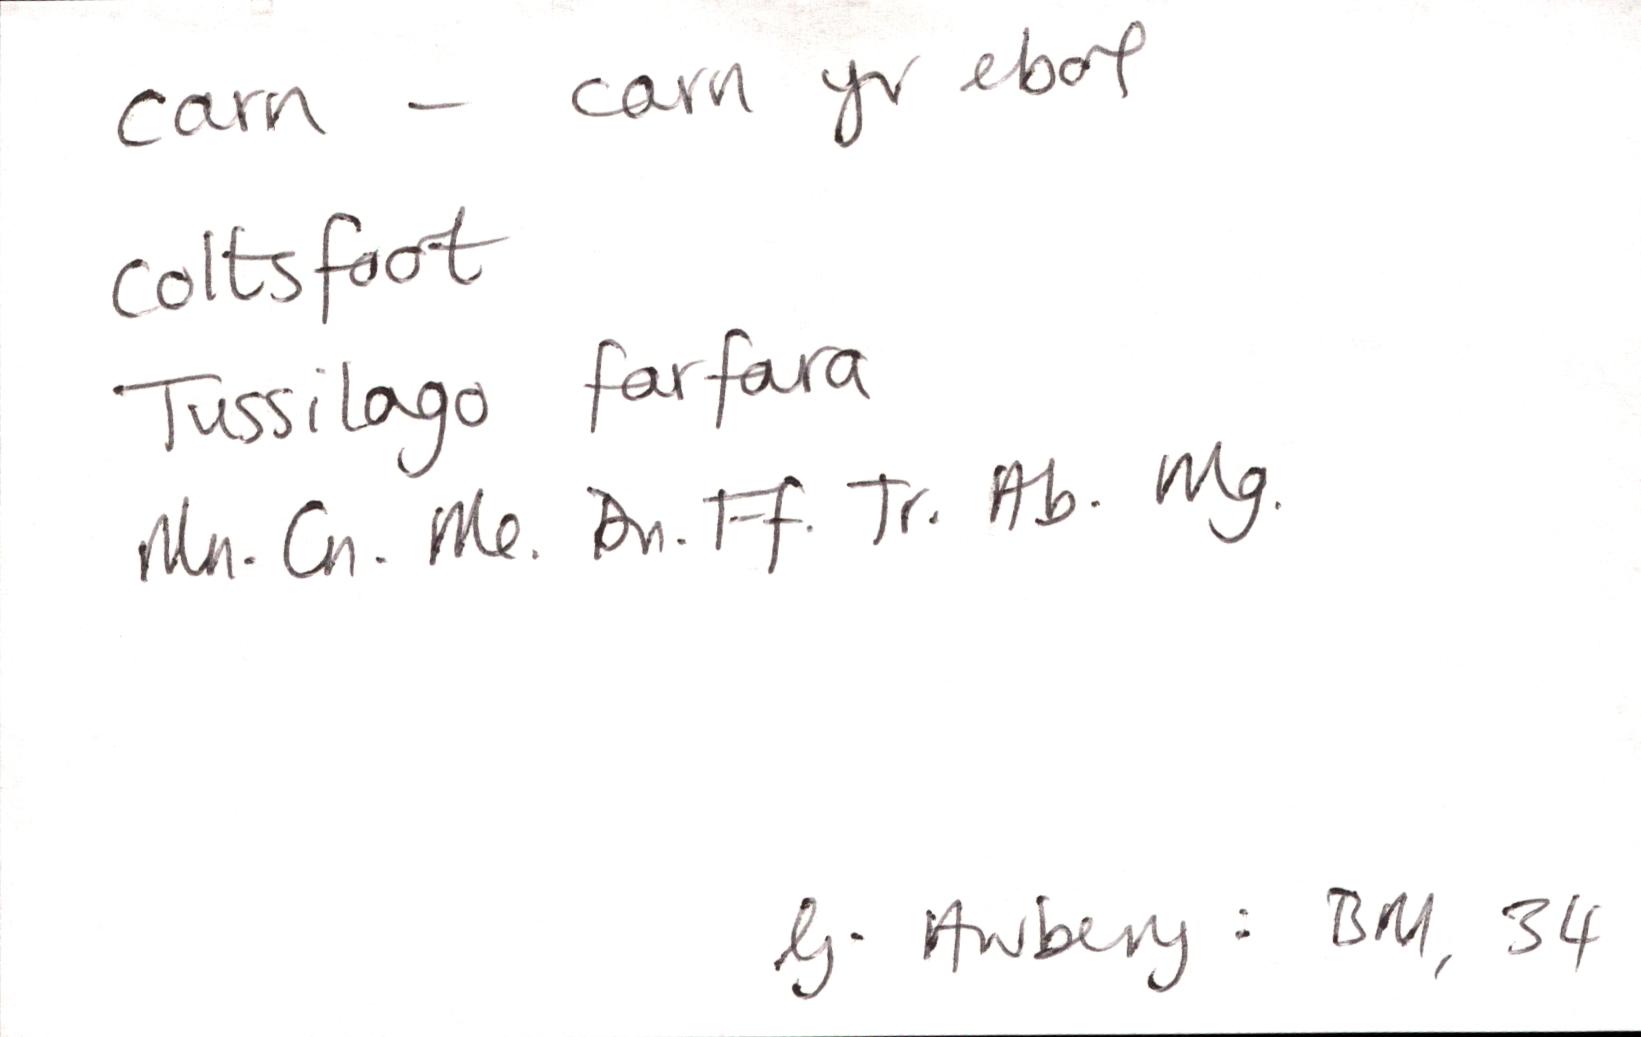 carn - carn yr ebol
Coltsfoot
Tussilago farfara
Mn. Cn. Me. Dn. Ff. Tr. Ab. Mg.
G. Awbery : BM, 34